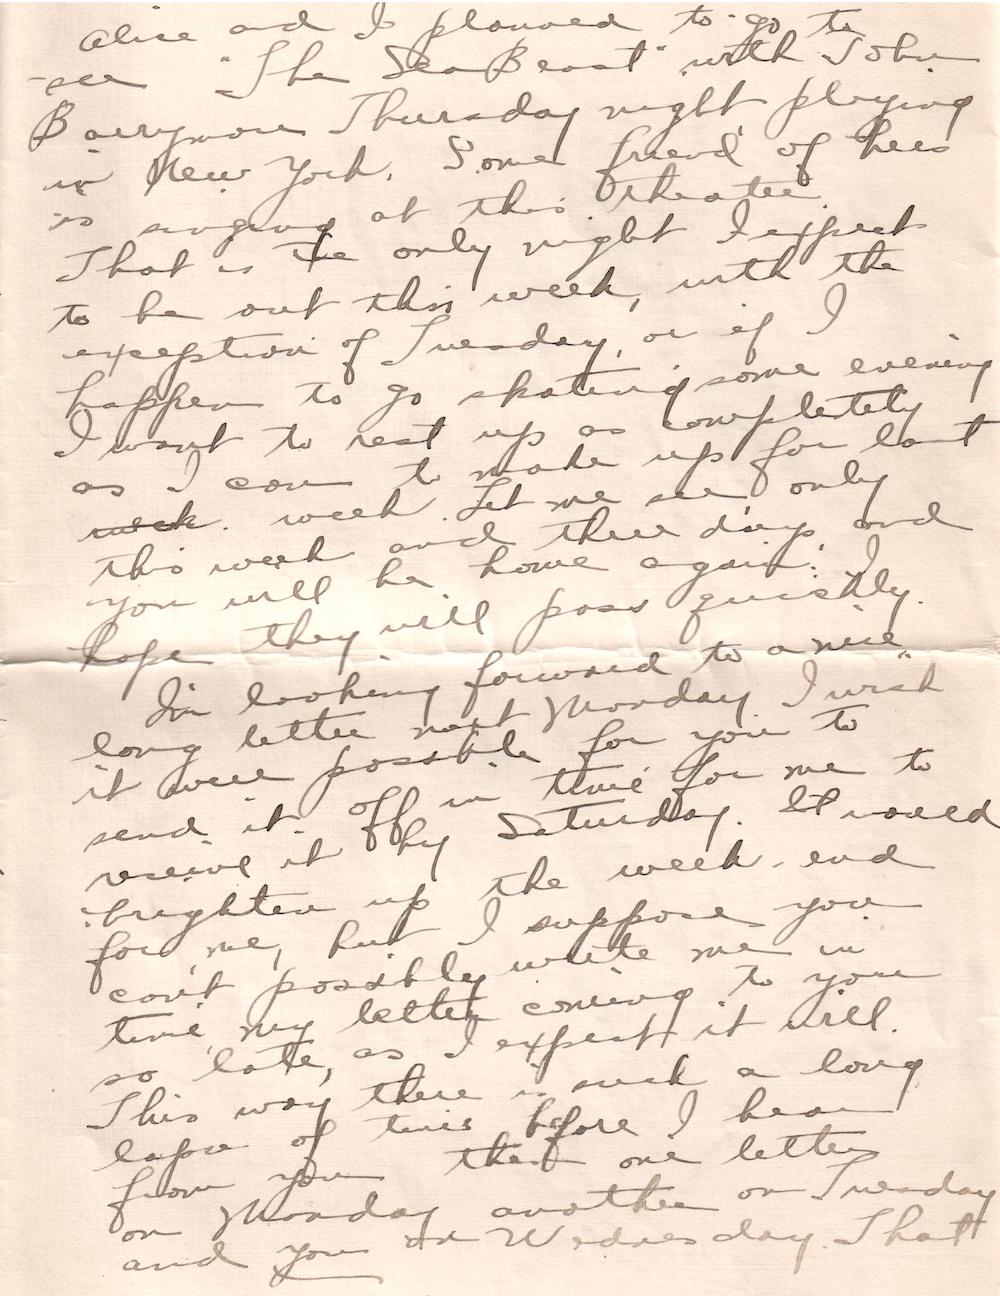 Alice and I planned to go to
see "The Sea Beast" with John
Barrymore Thursday night playing
in New York. Some friend of hers
is singing at this theatre.
That is the only night I expect
to be out this week, with the
exception of Tuesday, or if I
happen to go skating some evening
I want to rest up as completely
as I can to make up for last
week. week. Let me see, only
this week and three days and
you will be home again. I
hope they will pass quickly.
I'm looking forward to a nice
long letter next Monday. I wish
it were possible for you to
send it off in time for me to
receive it by Saturday. It would
brighten up the week-end
for me, but I suppose you
can't possibly write me in
time, my letter coming to you
so late, as I expect it will.
This way there is such a long
lapse of time before I hear
from you then one letter
on Monday another on Tuesday
and you on Wednesday. That